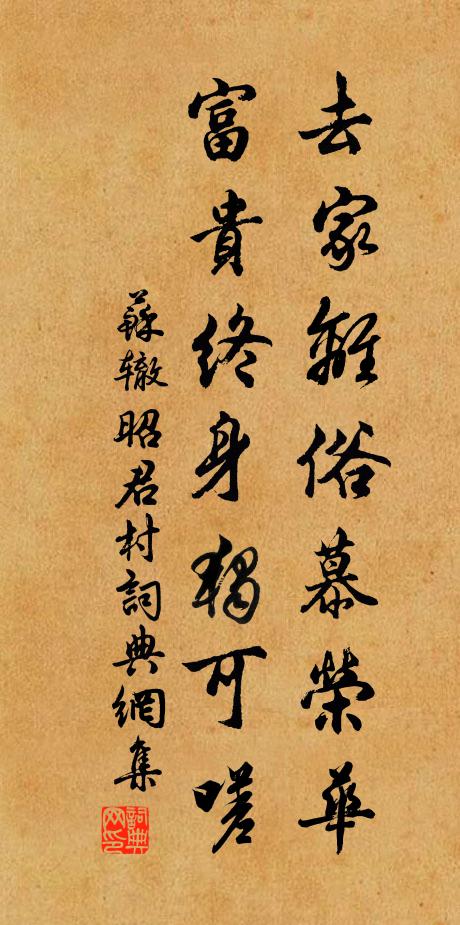 去家離俗慕榮華
富貴終身獨可嗟
蘇轍昭君村詞典網集
詞典网印